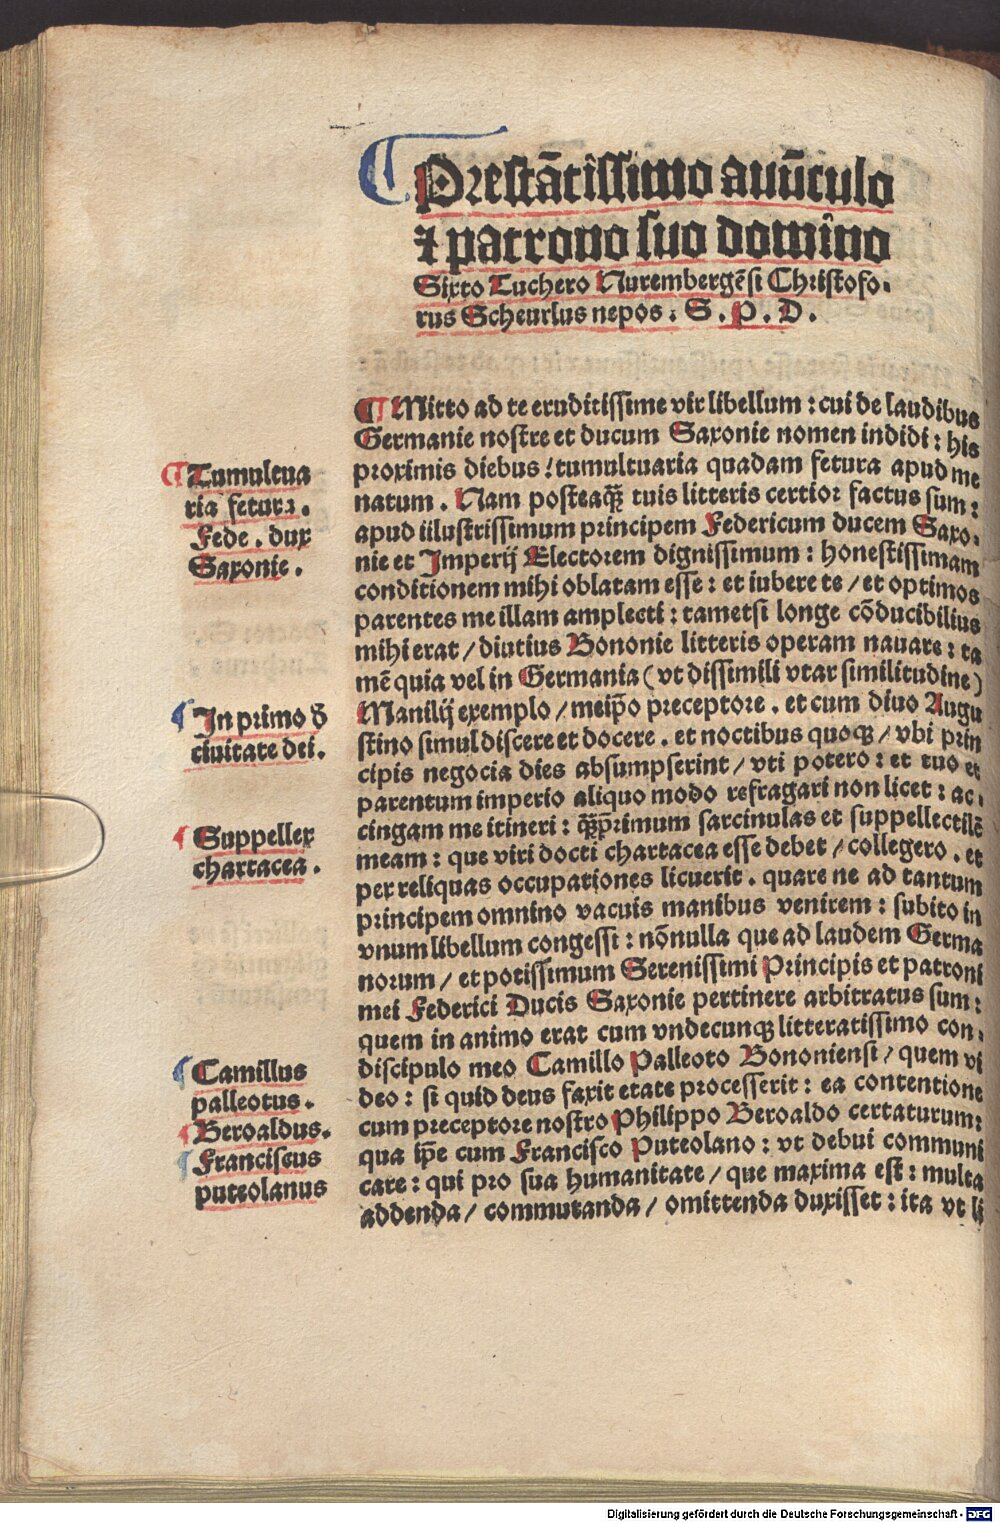 Prestātissimo auūculo
⁊ patrono suo domino
Sixto Tuchero Nurembergēsi Christofo-
rus Scheurlus nepos. S. P. D.
¶ Mitto ad te eruditissime vir libellum: cui de laudibus
Germanie nostre et ducum Saxonie nomen indidi: his
proximis diebus / tumultuaria quadam fetura apud me
natum. Nam posteaqȝ tuis litteris certior factus sum:
apud illustrissimum principem Federicum ducem Saxo-
nie et Imperij Electorem dignissimum: honestissimam
conditionem mihi oblatam esse: et iubere te / et optimos
parentes me illam amplecti: tametsi longe cōducibilius
mihi erat / diutius Bononie litteris operam nauare: ta
mē quia vel in Germania (vt dissimili vtar similitudine)
Manilij exemplo / meip̄o preceptore. et cum diuo Augu
stino simul discere et docere. et noctibus quoqȝ / vbi prin
cipis negocia dies absumpserint / vti potero: et tuo et
parentum imperio aliquo modo refragari non licet: ac-
cingam me itineri: qȝprimum sarcinulas et suppellectilē
meam: que viri docti chartacea esse debet / collegero. et
per reliquas occupationes licuerit. quare ne ad tantum
principem omnino vacuis manibus venirem: subito in
vnum libellum congessi: nōnulla que ad laudem Germa
norum / et potissimum Serenissimi Principis et patroni
mei Federici Ducis Saxonie pertinere arbitratus sum:
quem in animo erat cum vndecunqȝ litteratissimo con-
discipulo meo Camillo Palleoto Bononiensi / quem vi
deo: si quid deus faxit etate processerit: ea contentione
cum preceptore nostro Philippo Beroaldo certaturum:
qua ip̄e cum Francisco Puteolano: vt debui communi
care: qui pro sua humanitate / que maxima est: multa
addenda / commutanda / omittenda duxisset: ita vt li
¶ Tumultua
ria fetura.
Fede. dux
Saxonie.
In primo đ
ciuitate dei.
Suppellex
chartacea.
Camillus
palleotus.
Beroaldus.
Franciscus
puteolanus
Digitalisierung gefördert durch die Deutsche Forschungsgemeinschaft - DFG